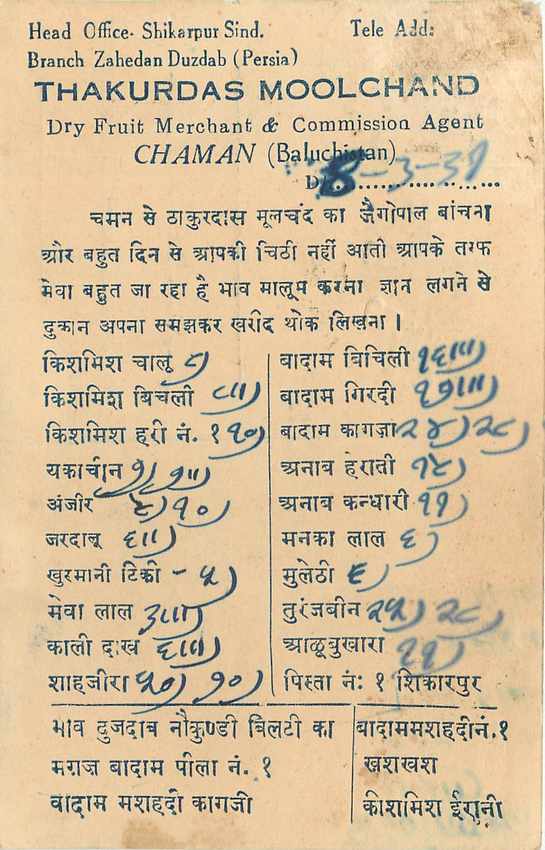 Head Office- Shikarpur Sind. Tele Add:
Branch Zahedan Duzdab (Persia)
THAKURDAS MOOLCHAND
Dry Fruit Merchant & Commission Agent
CHAMAN (Baluchistan)
D/ 8-3-39
चमन से ठाकुरदास मूलचंद का जैगोपाल बांचना
और बहुत दिन से आपकी चिठी नहीं आती आपके तरफ
मेवा बहुत जा रहा है भाव मालूम करना ज्ञान लगने से
दुकान अपना समझकर खरीद थोक लिखना।
किशमिश चालू ८)
किशमिश बिचली ८॥)
किशमिश हरी नं. १ १०)
यकाचीन
अंजीर ६) १०)
जरदालू ६॥)
खुरमानी टिकी - ५)
मेवा लाल ३॥)
काली दाख ६॥)
शाहजीरा ५०) ७०)
बादाम बिचिली १६॥)
बादाम गिरदी १७॥)
बादाम कागजा २४) २८)
अनाब हेराती १४)
अनाब कन्धारी ११)
मनका लाल ६)
मुलेठी ६)
तुरंजबीन २५) २८)
आळूबुखारा ११)
पिस्ता नं: १ शिकारपुर
भाव दुजदाब नौकुण्डी बिलटी का
मगज बादाम पीला नं. १
बादाम मशहदी कागजी
बादाममशहदीनं.१
खशखश
कीशमिश ईरानी